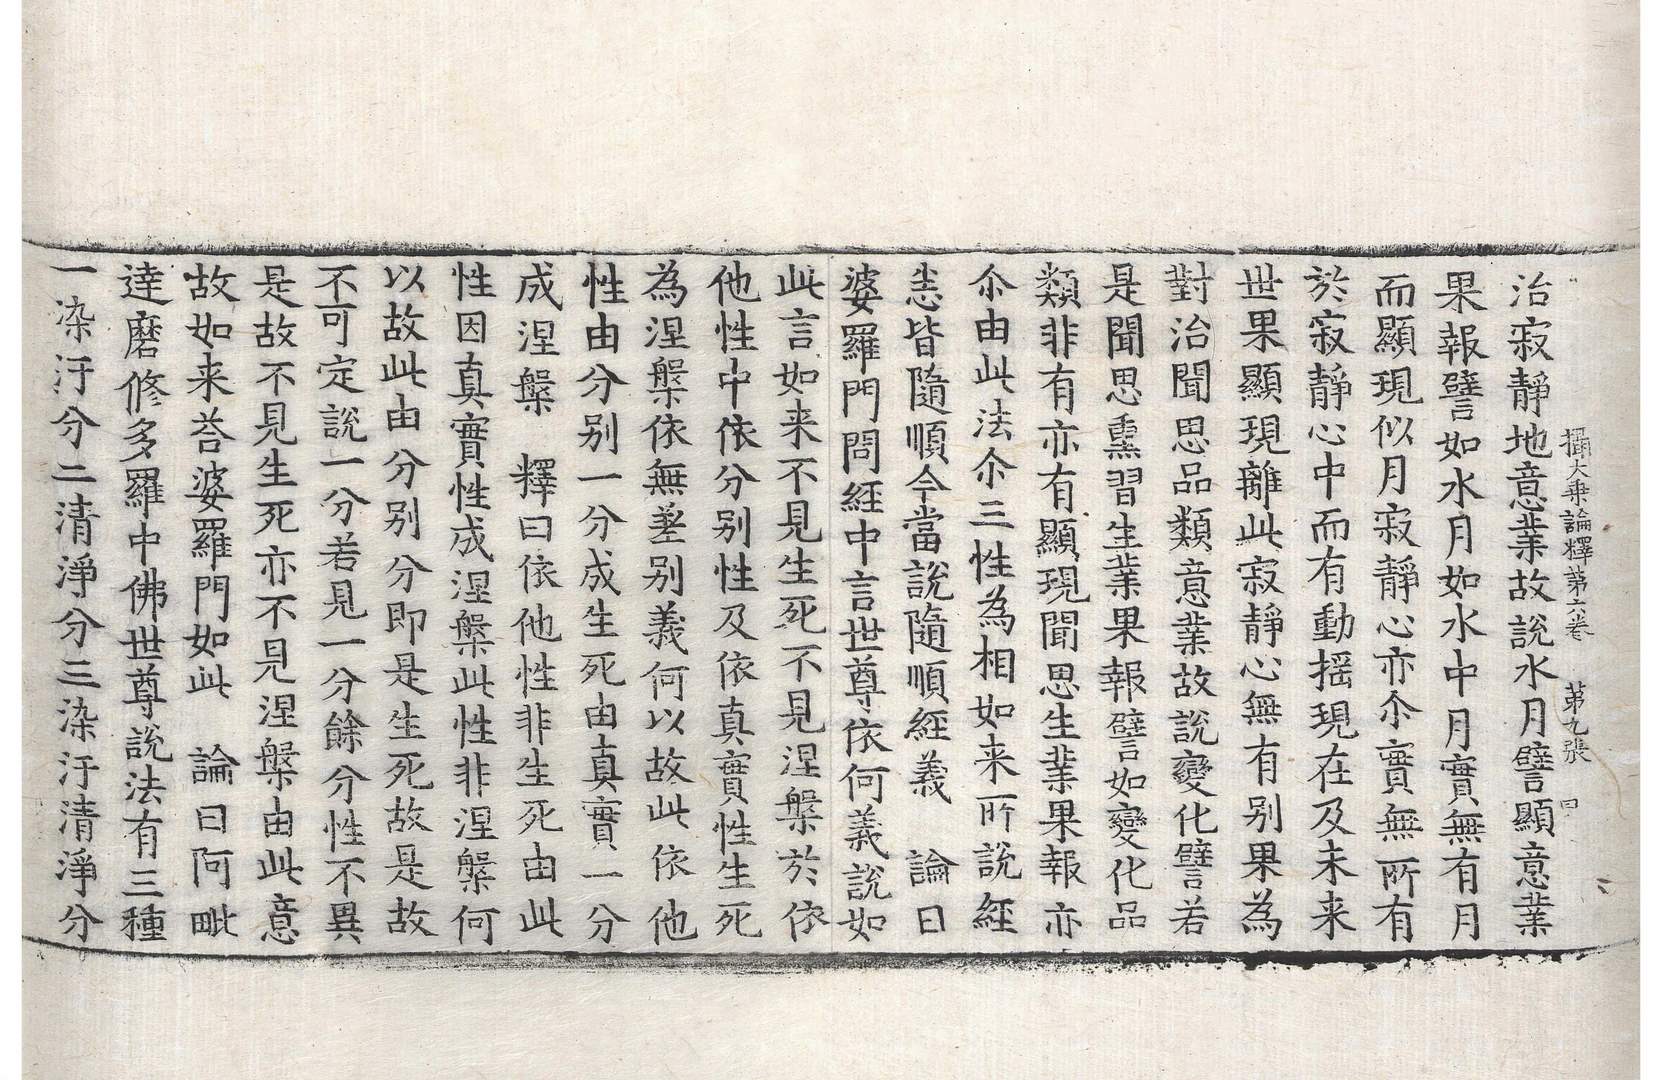 攝大乗論釋第六卷 第九張 曰
治寂靜地意業故說水月譬顯意業
果報譬如水月如水中月實無有月
而顯現似月寂靜心亦尒實無所有
於寂靜心中而有動揺現在及未来
世果顯現離此寂靜心無有别果為
對治聞思品類意業故說變化譬若
是聞思熏習生業果報譬如變化品
類非有亦有顯現聞思生業果報亦
尒由此法尒三性為相如来所說經
悉皆隨順今當說隨順經義 論曰
婆羅門問經中言世尊依何義說如
此言如来不見生死不見涅槃於依
他性中依分别性及依真實性生死
為涅槃依無差别義何以故此依他
性由分别一分成生死由真實一分
成涅槃 釋曰依他性非生死由此
性因真實性成涅槃此性非涅槃何
以故此由分别分即是生死故是故
不可定說一分若見一分餘分性不異
是故不見生死亦不見涅槃由此意
故如来荅婆羅門如此 論曰阿毗
達磨修多羅中佛世尊說法有三種
一染汙分二清淨分三染汙清淨分